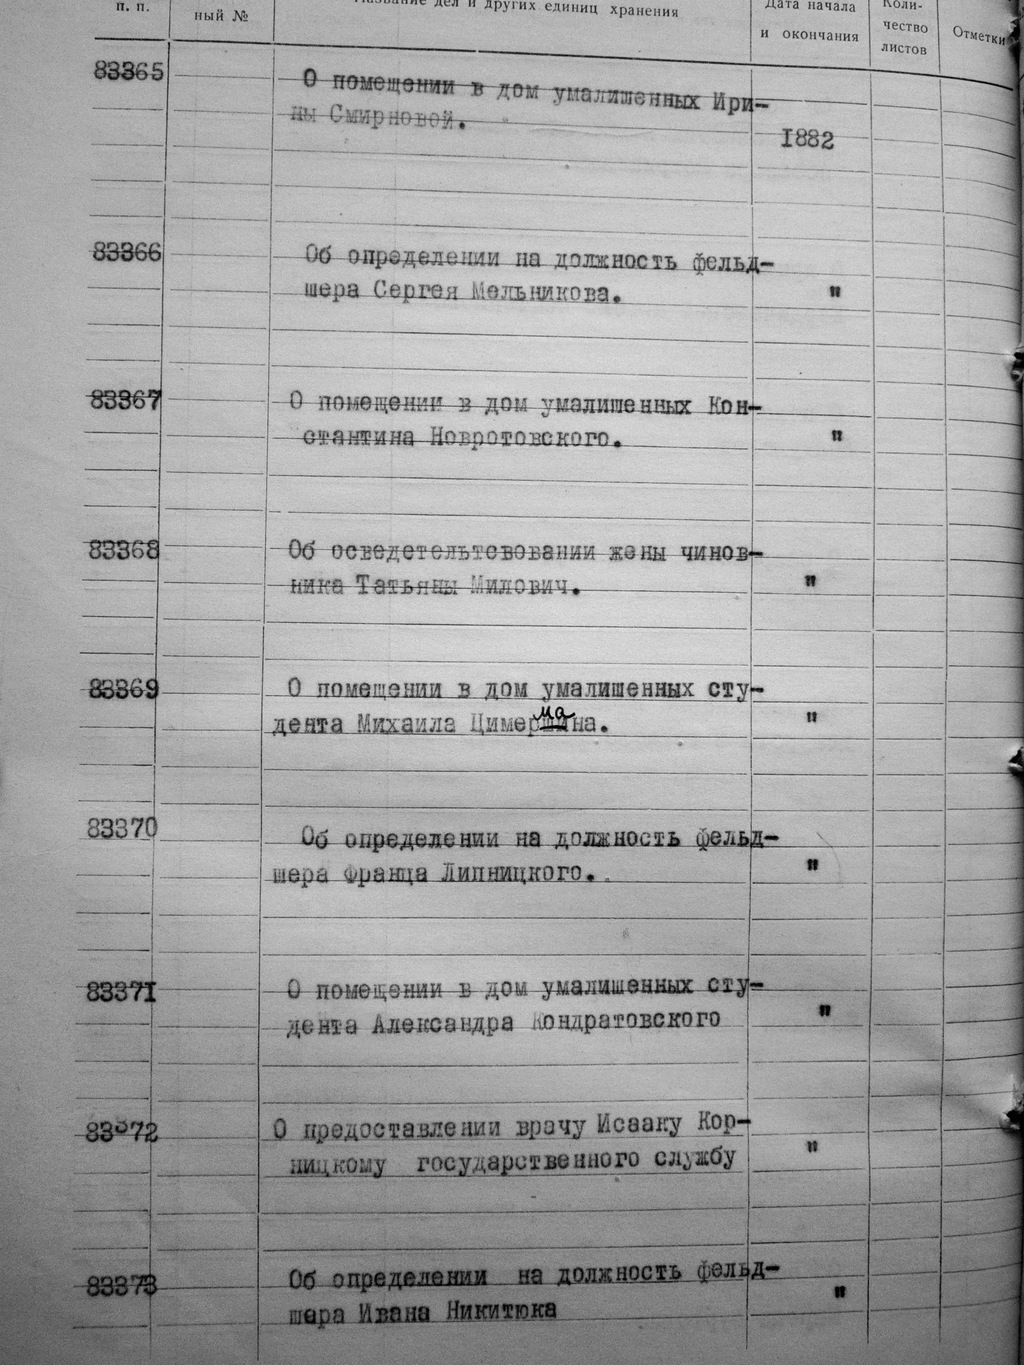 п. п.
ный №
Название дел и других единиц хранения
Дата начала
и окончания
Коли-
чество
листов
Отметки
83365
О помещении в дом умалишенных Ири-
ны Смирновой.
1882
83366
Об определении на должность фельд-
шера Сергея Мельникова.
"
83367
О помещении в дом умалишенных Кон-
стантина Новротовского.
"
83368
Об осведетельтсвовании жены чинов-
ника Татьяны Милович.
"
83369
О помещении в дом умалишенных сту-
ма
дента Михаила Цимершина.
"
83370
Об определении на должность фельд-
шера Франца Липницкого.
"
83371
О помещении в дом умалишенных сту-
дента Александра Кондратовского
"
83372
О предоставлении врачу Исааку Кор-
ницкому государственного службу
"
83373
Об определении на должность фельд-
шера Ивана Никитюка
"